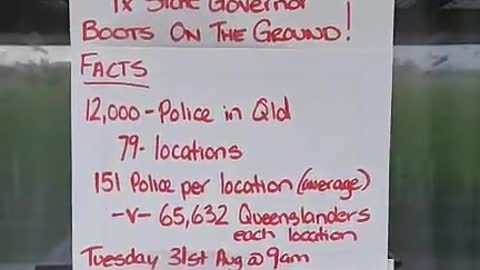 1x State Governor
BOOTS ON THE GROUND!
FACTS
12,000 - Police in Qld
79 - locations
151 Police per location (average)
-v- 65,632 Queenslanders
each location
Tuesday 31st Aug @ 9am